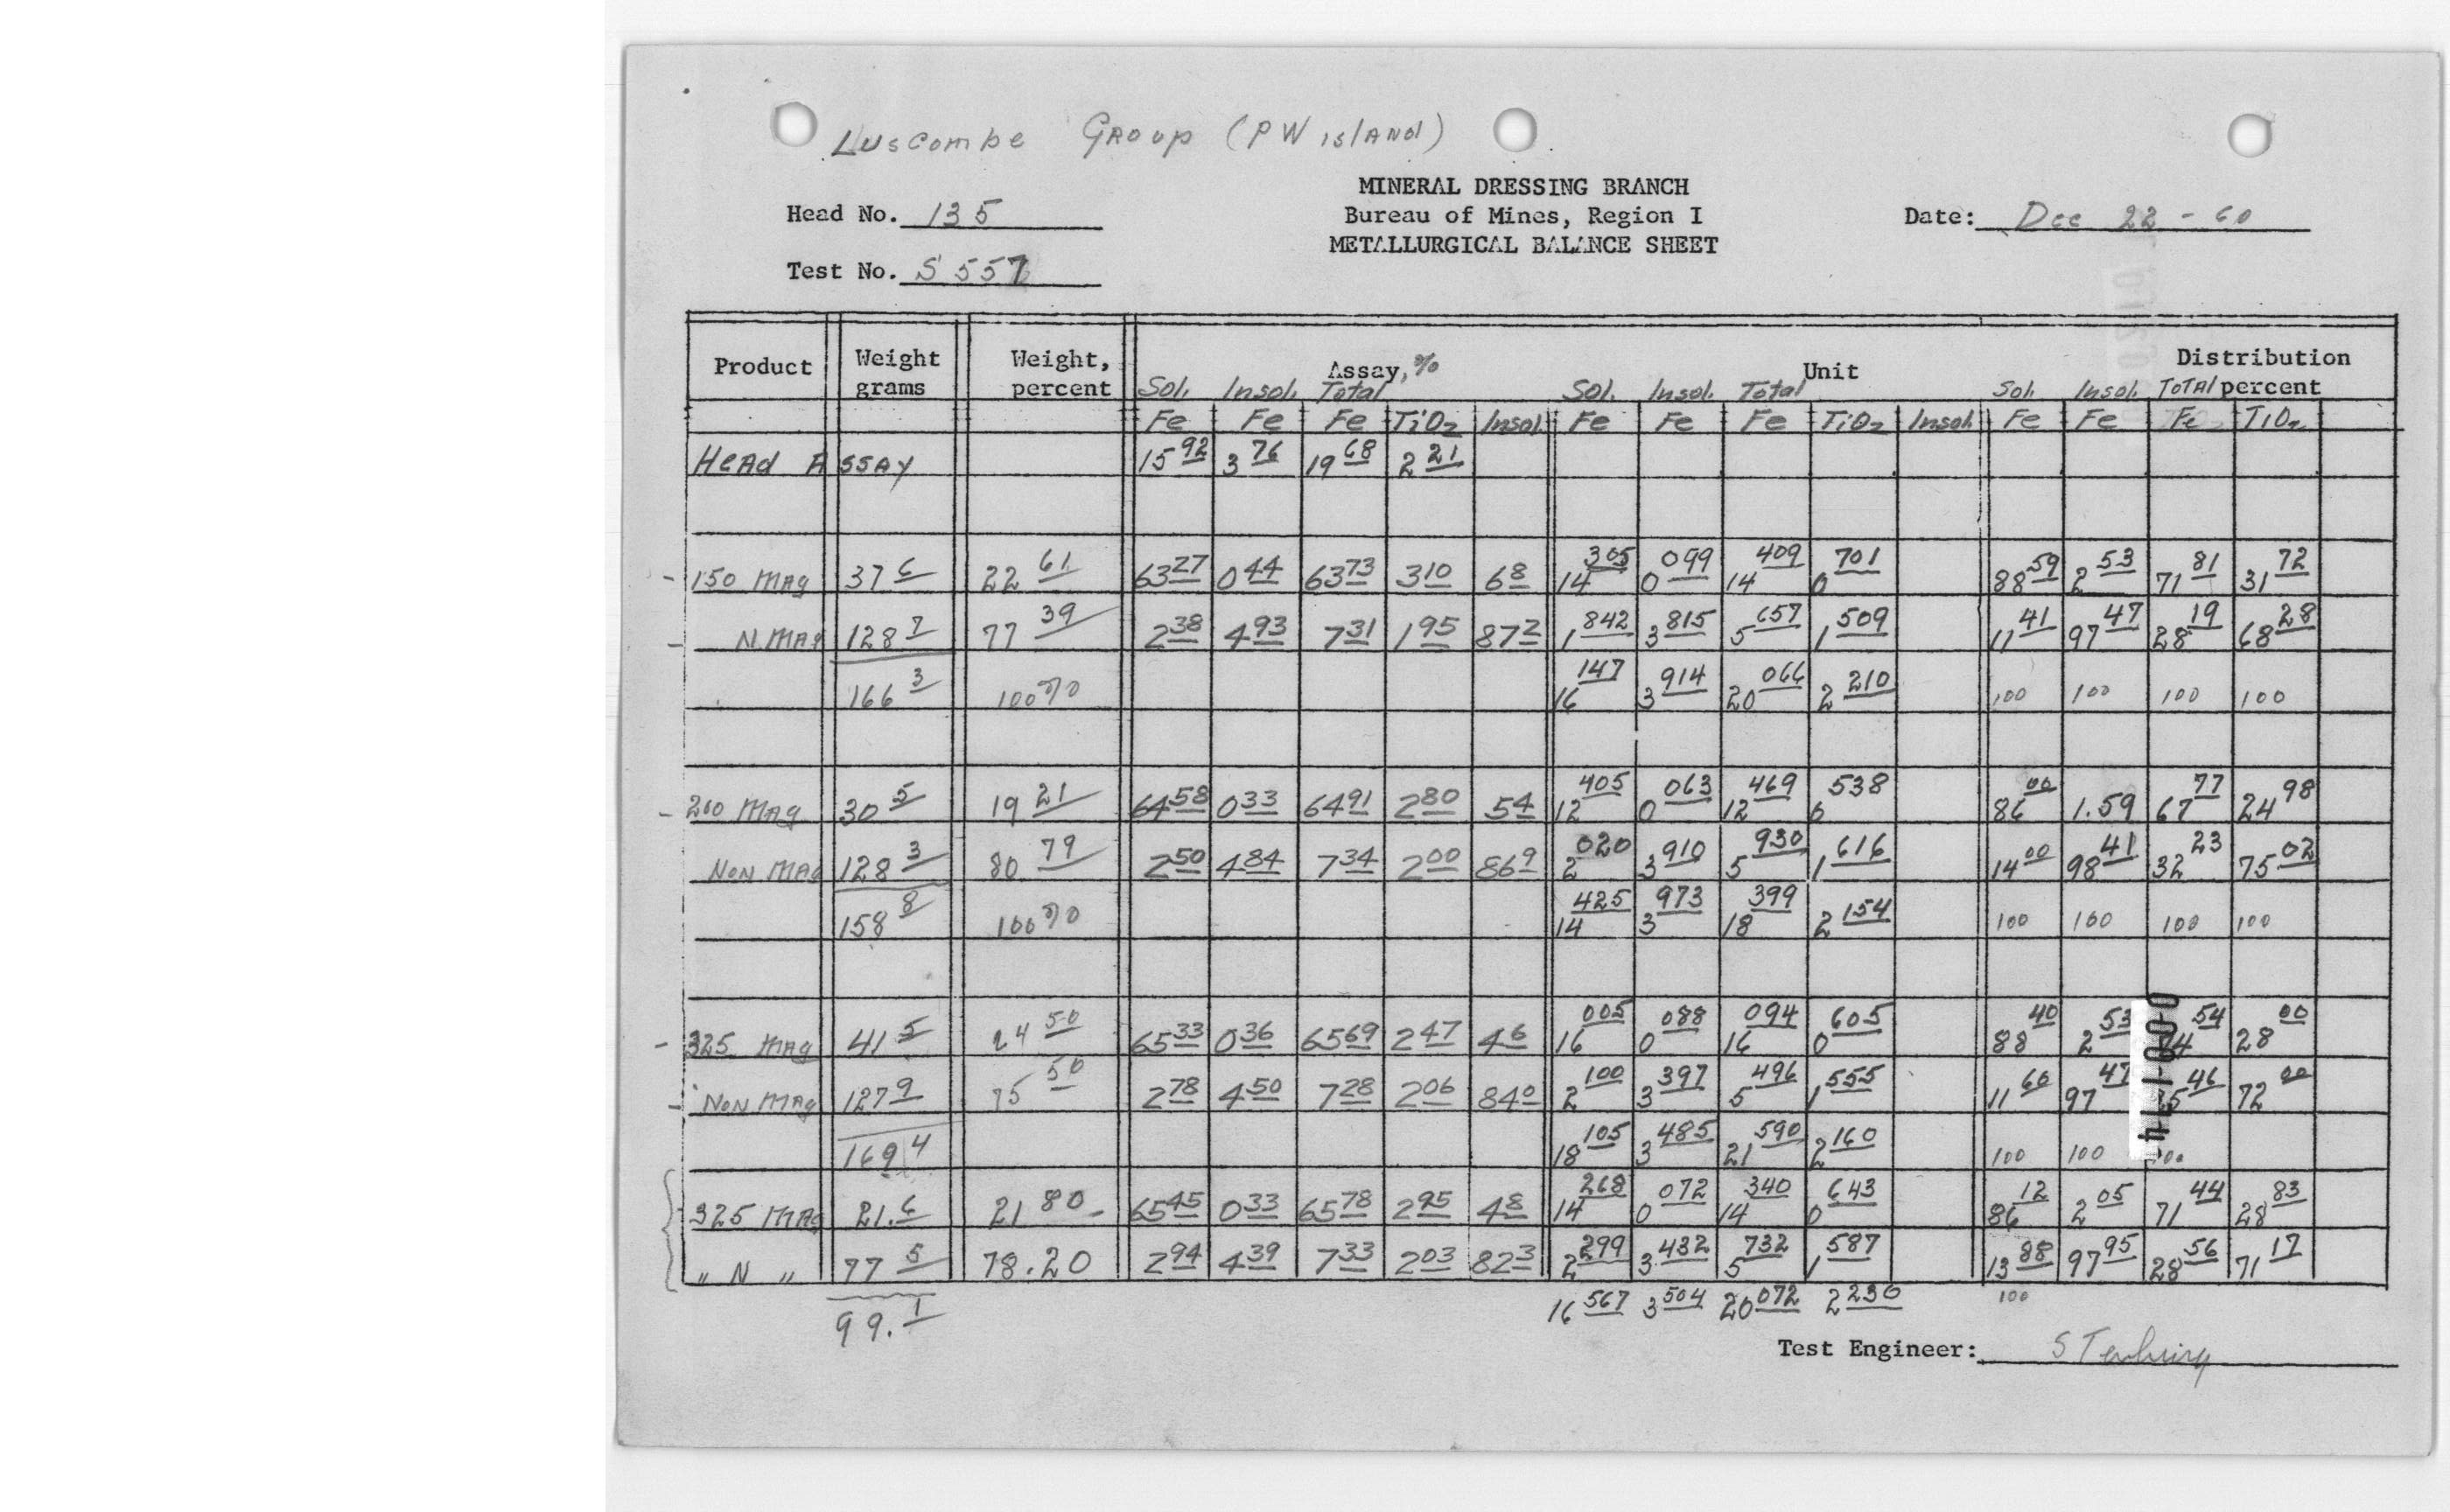 Luscombe Group (PW island)
MINERAL DRESSING BRANCH
Head No. 135 Bureau of Mines, Region I Date: Dec 22 - 60
METALLURGICAL BALANCE SHEET
Test No. S 557
Product Weight grams Weight, percent Assay, % Unit Distribution percent
Sol. Insol. Total Sol. Insol. Total Sol. Insol. TOTAL
Fe Fe Fe TiO2 Insol. Fe Fe Fe TiO2 Insol. Fe Fe Fe TiO2
Head Assay 15 92 3 76 19 68 2 21
- 150 Mag 37 6 22 61 63 27 0 44 63 73 3 10 6 8 14 305 0 099 14 409 0 701 88 59 2 53 71 81 31 72
- N. Mag 128 7 77 39 2 38 4 93 7 31 1 95 87 2 1 842 3 815 5 657 1 509 11 41 97 47 28 19 68 28
166 3 100% 16 147 3 914 20 066 2 210 100 100 100 100
- 200 Mag 30 5 19 21 64 58 0 33 64 91 2 80 5 4 12 405 0 063 12 469 0 538 86 00 1.59 67 77 24 98
Non Mag 128 3 80 79 2 50 4 84 7 34 2 00 86 9 2 020 3 910 5 930 1 616 14 00 98 41 32 23 75 02
158 8 100% 14 425 3 973 18 399 2 154 100 100 100 100
- 325 Mag 41 5 24 50 65 33 0 36 65 69 2 47 4 6 16 005 0 088 16 094 0 605 88 40 2 53 74 54 28 00
- Non Mag 127 9 75 50 2 78 4 50 7 28 2 06 84 0 2 100 3 397 5 496 1 555 11 60 97 47 25 46 72 00
169 4 18 105 3 485 21 590 2 160 100 100 100
325 Mag 21.6 21 80 65 45 0 33 65 78 2 95 4 8 14 268 0 072 14 340 0 643 86 12 2 05 71 44 28 83
" N " 77 5 78.20 2 94 4 39 7 33 2 03 82 3 2 299 3 432 5 732 1 587 13 88 97 95 28 56 71 17
99.1 16 567 3 504 20 072 2 230 100
Test Engineer: